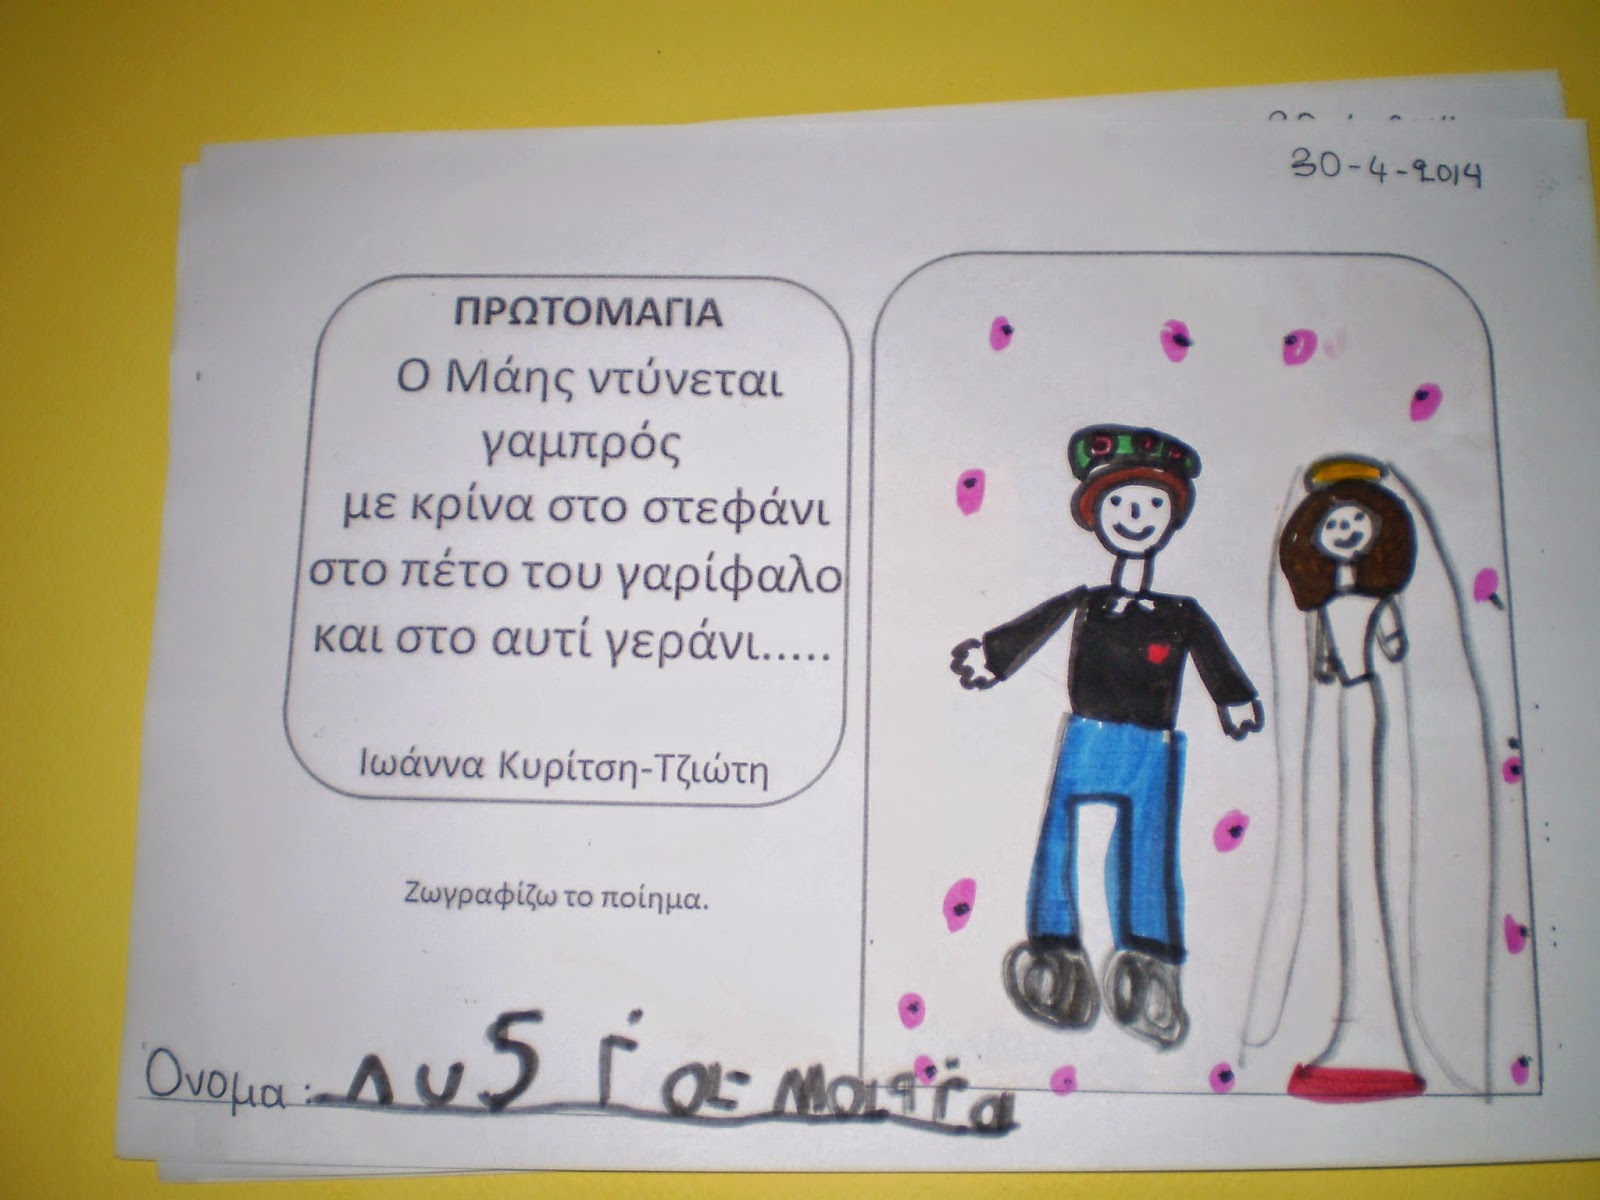 30-4-2014
ΠΡΩΤΟΜΑΓΙΑ
Ο Μάης ντύνεται
γαμπρός
με κρίνα στο στεφάνι
στο πέτο του γαρίφαλο
και στο αυτί γεράνι.....
Ιωάννα Κυρίτση-Τζιώτη
Ζωγραφίζω το ποίημα.
Όνομα: